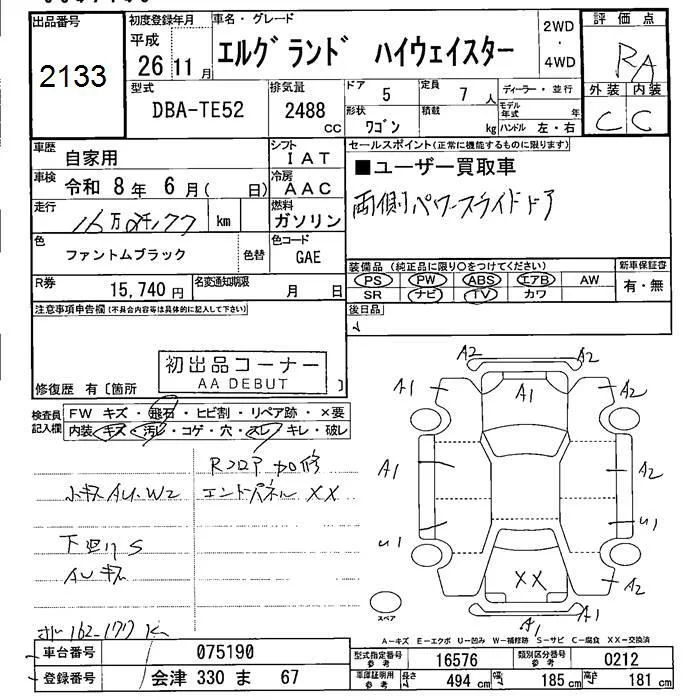 出品番号
2133
初度登録年月
平成
26年11月
車名・グレード
エルグランド ハイウェイスター
2WD
・
4WD
評価点
RA
外装 内装
C C
型式
DBA-TE52
排気量
2488
CC
ドア
5
定員
7人
形状
ワゴン
積載
kg
ディーラー・並行
モデル年式
年
ハンドル 左・右
車歴
自家用
シフト
IAT
車検
令和 8年 6月( 日)
冷房
AAC
走行
km
燃料
ガソリン
色
ファントムブラック
色替
色コード
GAE
R券
15,740円
名変通知期限
月 日
セールスポイント(正常に機能するものに限ります)
■ユーザー買取車
両側パワースライドドア
装備品(純正品に限り○をつけてください)
PS PW ABS エアB AW
SR ナビ TV カワ
新車保証書
有・無
後日品
注意事項申告欄(不具合内容等は具体的に記入して下さい)
初出品コーナー
AA DEBUT
修復歴 有〔箇所 〕
検査員記入欄
FW キズ・飛石・ヒビ割・リペア跡・×要
内装 キズ・汚レ・コゲ・穴・スレ・キレ・破レ
Rフロア加修
小キズAU.W2
エンドパネルXX
下廻りS
AUキズ
A2 A2
A1 A1 A2
A1 A2
U1 U1
XX A2
A1 A1
スペア
A-キズ E-エクボ U-凹み W-補修跡 S-サビ C-腐食 XX-交換済
車台番号
075190
登録番号
会津 330 ま 67
型式指定番号
参考
16576
類別区分番号
参考
0212
車庫証明用
参考
長さ
494 cm
幅
185 cm
高さ
181 cm